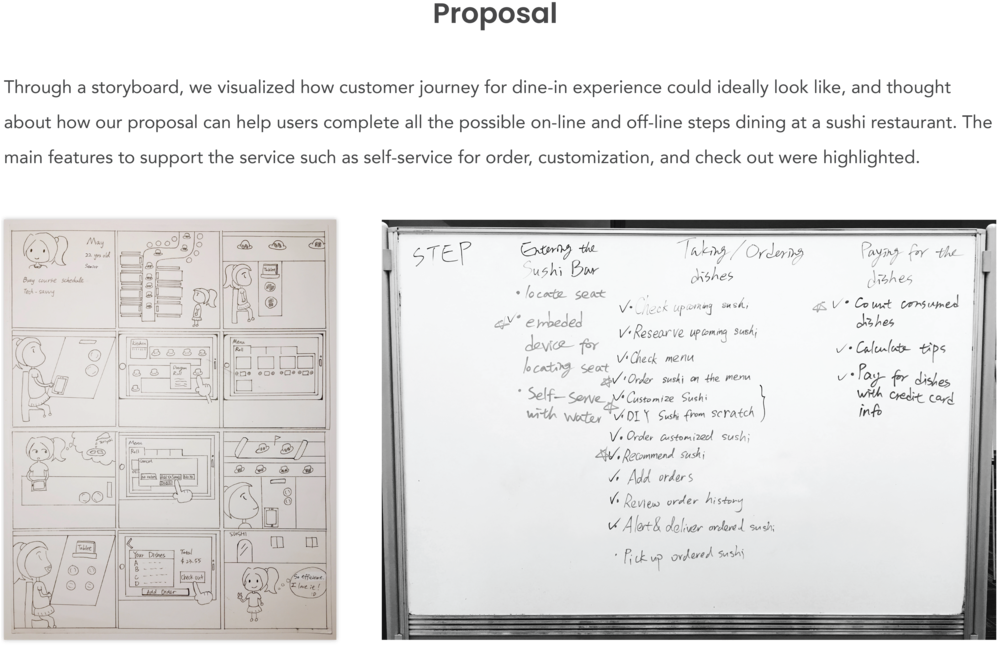 Proposal
Through a storyboard, we visualized how customer journey for dine-in experience could ideally look like, and thought
about how our proposal can help users complete all the possible on-line and off-line steps dining at a sushi restaurant. The
main features to support the service such as self-service for order, customization, and check out were highlighted.
May
Busy course schedule
Tech-savvy
Tablet
Menu
Roll
Menu
Roll
Tablet
Your Dishes
A
B
C
D
Total
Check out
Add Order
So efficient
I love it!
STEP
Entering the
Sushi Bar
• locate seat
✓• embeded
device for
locating seat
• Self-serve
with water
Taking/Ordering
dishes
✓• Check upcoming sushi
✓• Researve upcoming sushi
✓• Check menu
✓• Order sushi on the menu
✓• Customize Sushi
✓• DIY Sushi from scratch
✓• Order customized sushi
✓• Recommend sushi
✓• Add orders
✓• Review order history
✓• Alert & deliver ordered sushi
• Pick up ordered sushi
Paying for the
dishes
✓• Count consumed
dishes
✓• Calculate tips
✓• Pay for dishes
with credit card
info